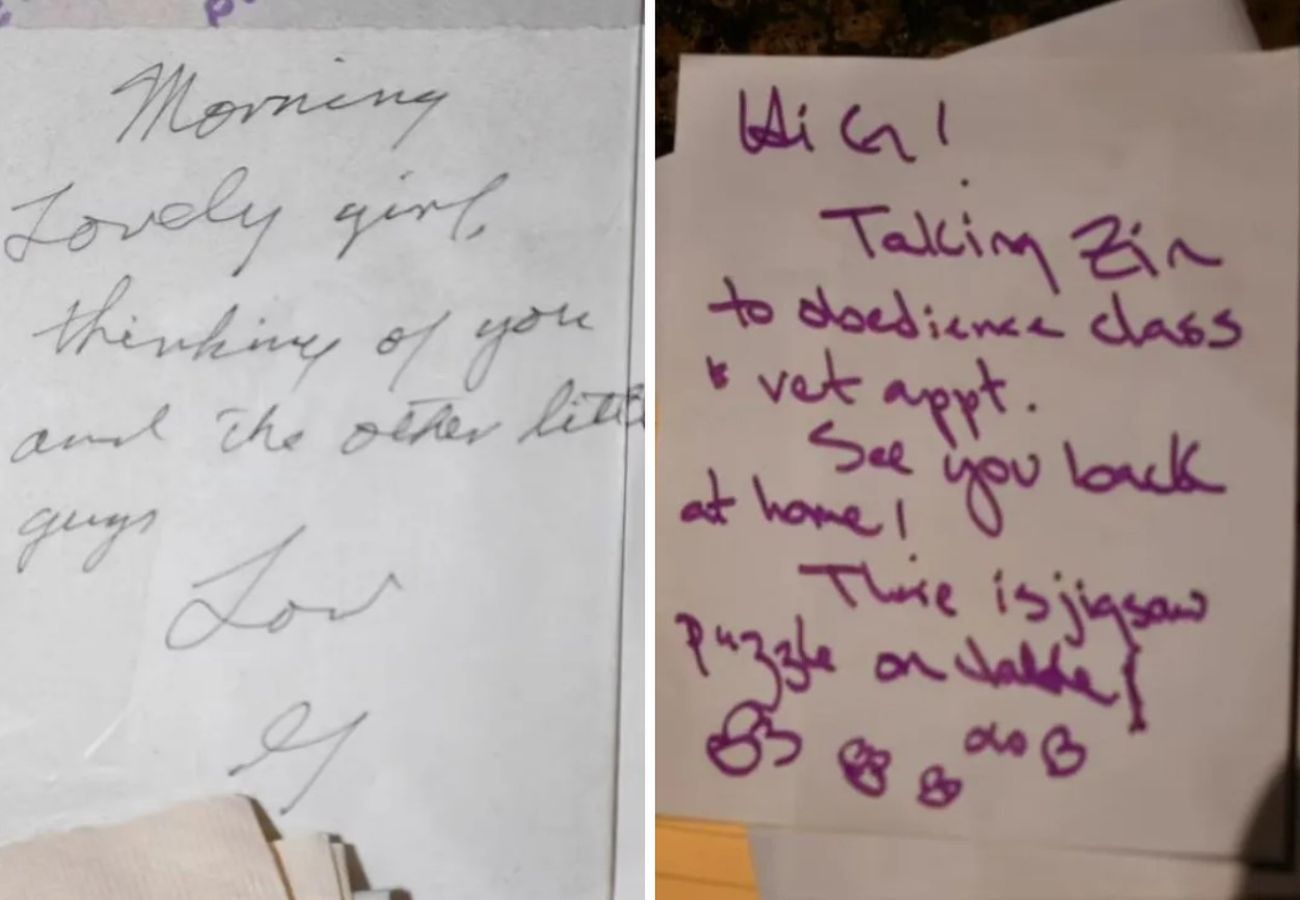 Morning
Lovely girl,
thinking of you
and the other little
guys
Love
G
Hi G!
Taking Zin
to obedience class
& vet appt.
See you back
at home!
There is jigsaw
puzzle on table!